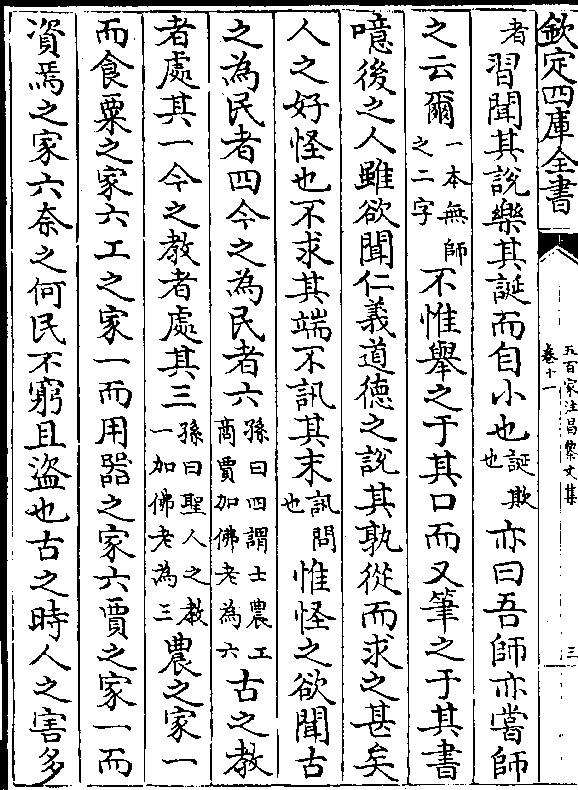 欽定四庫全書
五百家注昌黎文集
卷十一
三
者習聞其說樂其誕而自小也誕欺也亦曰吾師亦嘗師
之云爾一本無師之二字不惟舉之于其口而又筆之于其書
噫後之人雖欲聞仁義道德之說其孰從而求之甚矣
人之好怪也不求其端不訊其末訊問也惟怪之欲聞古
之為民者四今之為民者六孫曰四謂士農工商賈加佛老為六古之教
者處其一今之教者處其三孫曰聖人之教一加佛老為三農之家一
而食粟之家六工之家一而用器之家六賈之家一而
資焉之家六奈之何民不窮且盜也古之時人之害多